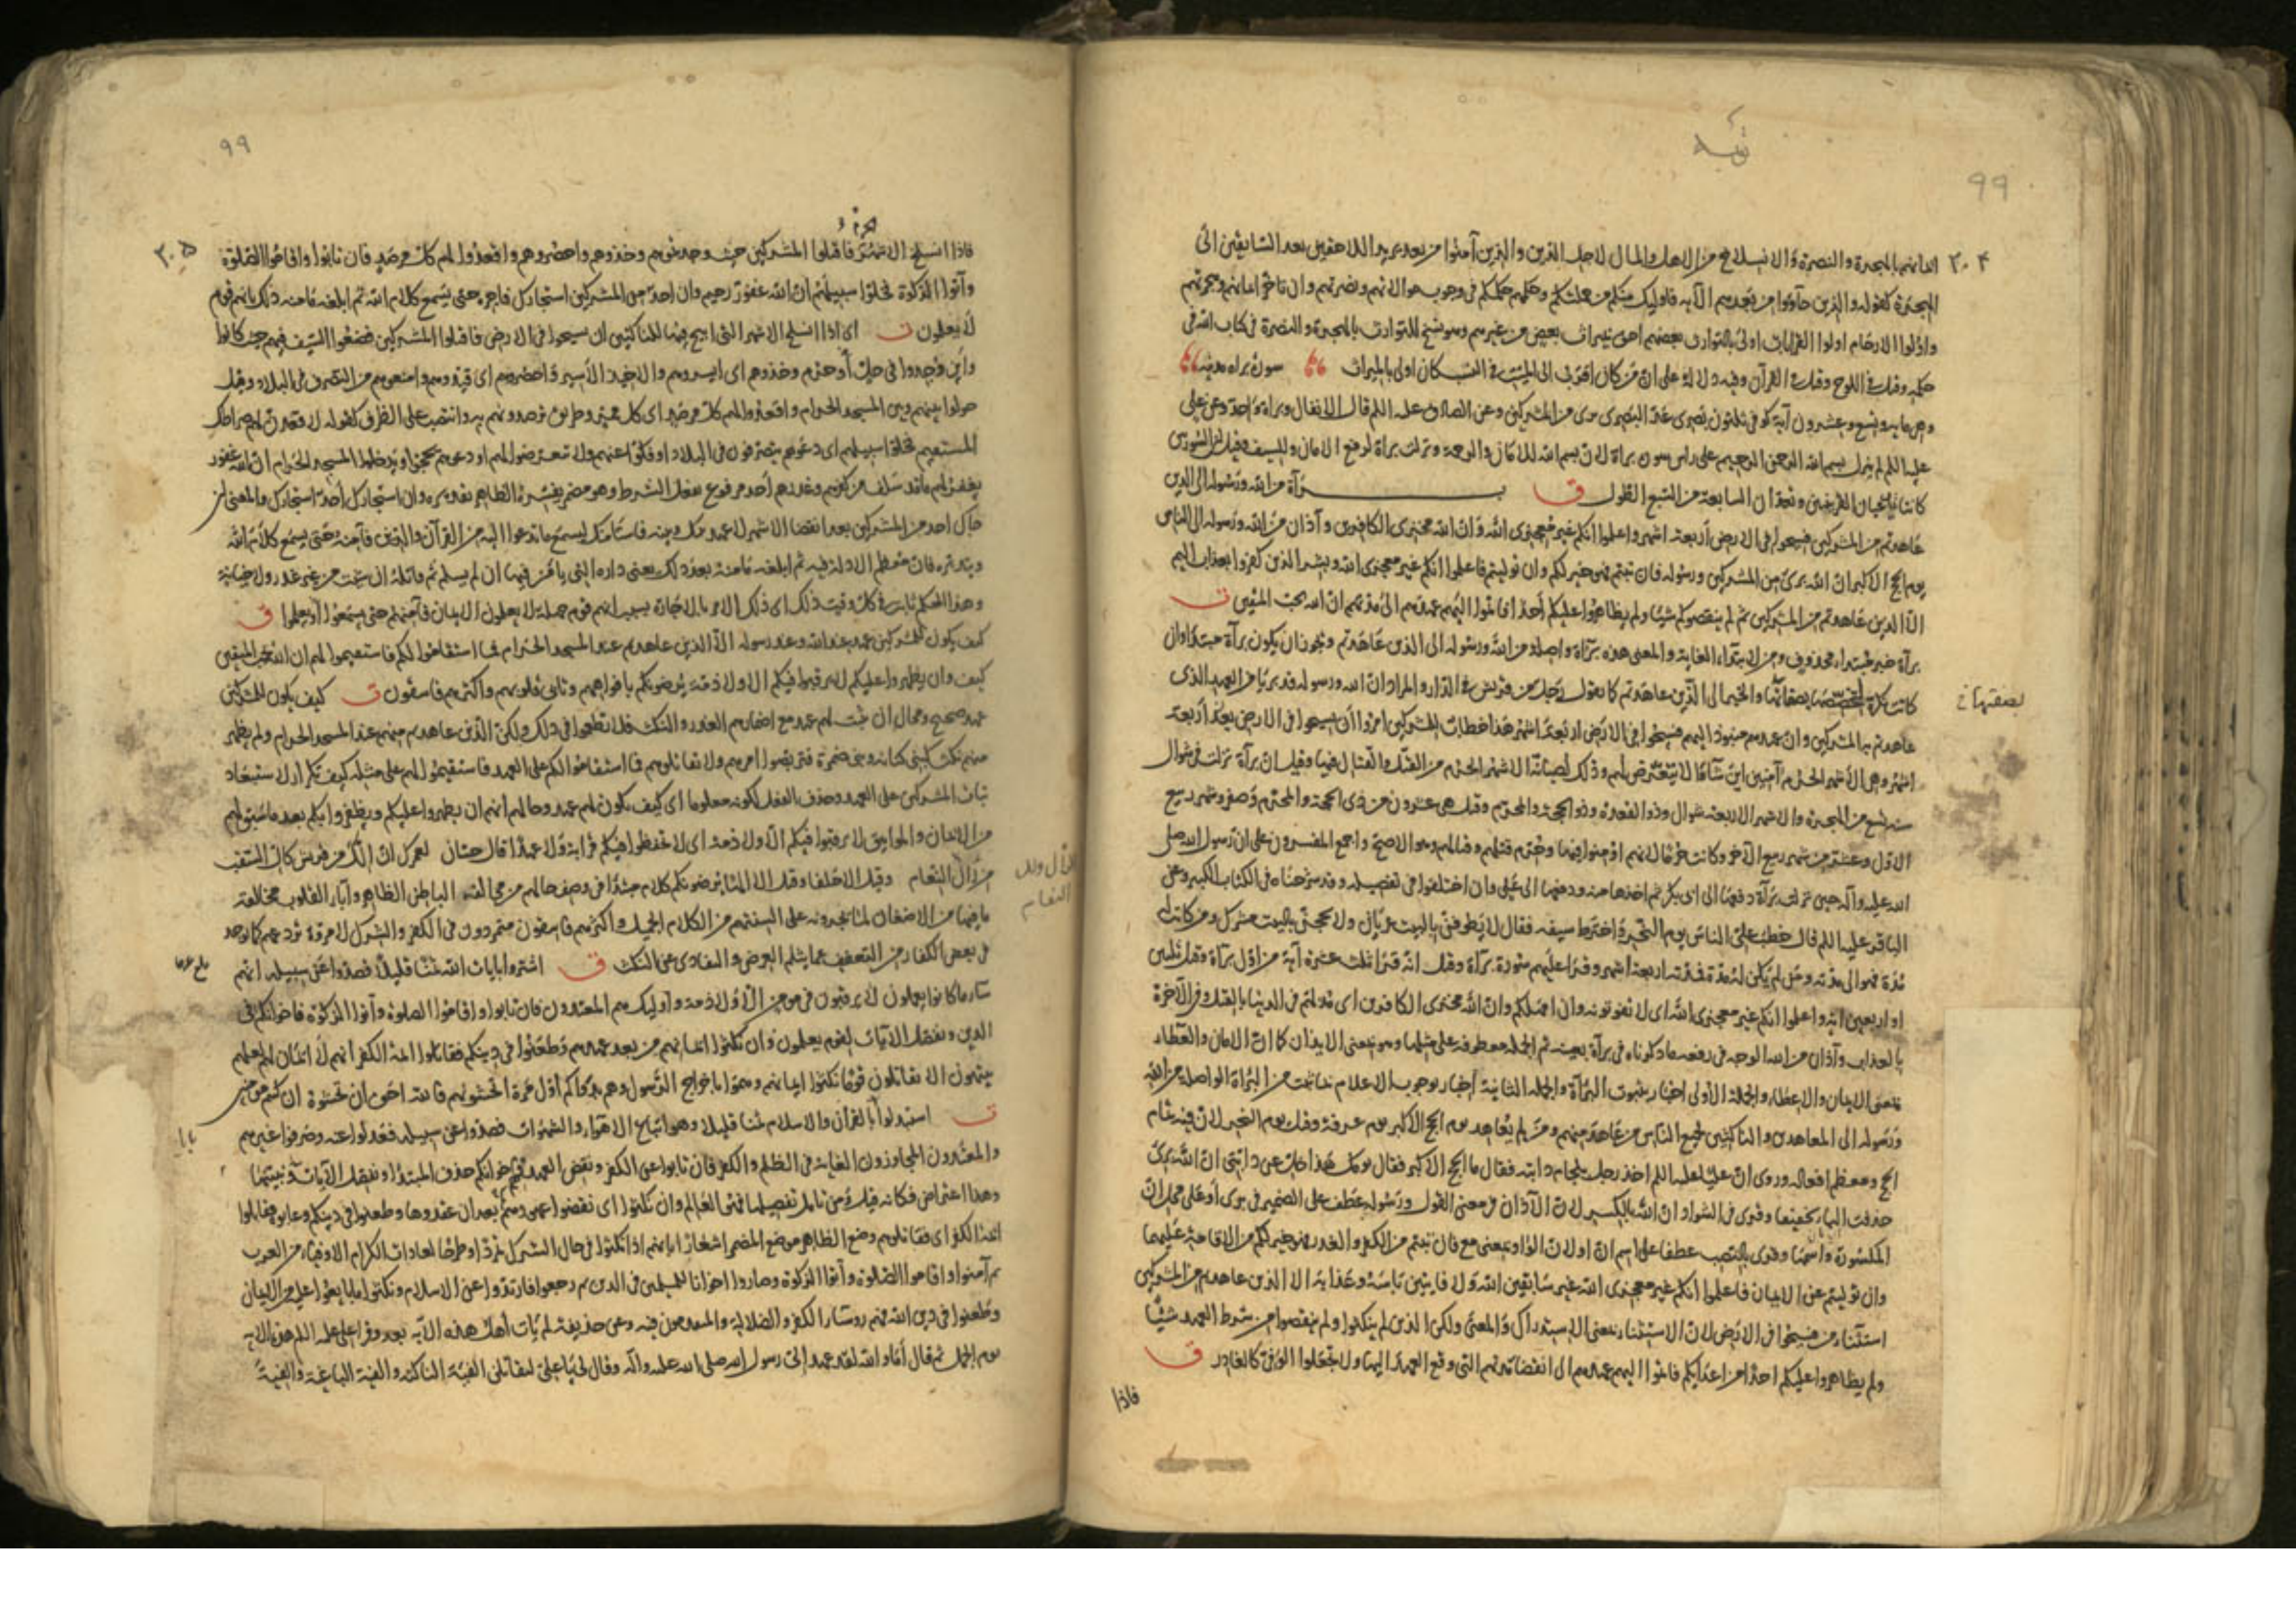 ٩٩
٣٠٤ ايمانهم بالهجرة والنصرة والانسلاخ من الاهل والمال لاجل الدين والذين آمنوا من بعد يريد اللاحقين بعد السابقين الى
الهجرة كقوله والذين جاؤوا من بعدهم الآية فاوليك منكم من جملتكم وحكمهم حكمكم فى وجوب موالاتهم ونصرتهم وان تاخر ايمانهم وهجرتهم
واولوا الارحام اولوا القرابات اولى بالتوارث بعضهم احق بميراث بعض من غيرهم وهو نسخ للتوارث بالهجرة والنصرة فى كتاب الله فى
حكمه وقيل فى اللوح وقيل فى القرآن وفيه دلالة على ان من كان اقرب الى الميت فى النسب كان اولى بالميراث سورة براه مدنية
وهى مايه وتسع وعشرون آية كوفى ثلثون بصرى عد البصرى برى من المشركين وعن الصادق عليه اللم قال الانفال وبراة واحدة وعن على
عليه اللم لم ينزل بسم الله الرحمن الرحيم على راس سورة براة لان بسم الله للامان والرحمة ونزلت براة لرفع الامان والسيف وقيل السورتين
كانتا تدعيان القرينتين وتعدان السابعة من السبع الطول ق براة من الله ورسوله الى الذين
عاهدتم من المشركين فسيحوا فى الارض اربعة اشهر واعلموا انكم غير معجزى الله وان الله مخزى الكافرين وآذان من الله ورسوله الى الناس
يوم الحج الاكبر ان الله برئ من المشركين ورسوله فان تبتم فهو خير لكم وان توليتم فاعلموا انكم غير معجزى الله وبشر الذين كفروا بعذاب اليم
الا الذين عاهدتم من المشركين ثم لم ينقصوكم شيئا ولم يظاهروا عليكم احدا فاتموا اليهم عهدهم الى مدتهم ان الله يحب المتقين ت
برآة خبر مبتداء محذوف ومن لابتداء الغاية والمعنى هذه براة واصلة من الله ورسوله الى الذين عاهدتم ويجوز ان يكون برآة مبتدا وان
كانت نكرة لتخصصها بصفاتها والخبر الى الذين عاهدتم كما تقول رجل من قريش فى الدار والمراد ان الله ورسوله قد بريا من العهد الذى
بصفتها خ
عاهدتم به المشركين وان عهدهم منبوذ اليهم فسيحوا فى الارض اربعة اشهر هذا خطاب للمشركين امروا ان يسيحوا فى الارض بعد اربعة
اشهر وهى الاشهر الحرم آمنين اين شاؤا لا يتعرض لهم وذلك لصيانة الاشهر الحرم من القتل والقتال فيها وقيل ان برآة نزلت فى شوال
سنة تسع من الهجرة والاشهر الاربعة شوال وذو القعدة وذو الحجة والمحرم وقيل هى عشرون من ذى الحجة والمحرم وصفر وشهر ربيع
الاول وعشر من شهر ربيع الآخر وكانت حرما لانهم اومنوا فيها وحرم قتلهم وقتالهم وهو الاصح واجمع المفسرون على ان رسول الله صلى
الله عليه وآله حين نزلت براة دفعها الى ابى بكر ثم اخذها منه ودفعها الى على وان اختلفوا فى تفصيله وقد شرحناه فى الكتاب الكبير وعن
الباقر عليه اللم قال خطب على الناس يوم النحر واخترط سيفه فقال لا يطوفن بالبيت عريان ولا يحجن بالبيت مشرك ومن كانت له
مدة فهو الى مدته ومن لم يكن له مدة فمدته اربعة اشهر وقرا عليهم سورة برآة وقيل انه قرا ثلث عشرة آية من اول برآة وقيل ثلثين
او اربعين آية واعلموا انكم غير معجزى الله اى لا تفوتونه وان امهلكم وان الله مخزى الكافرين اى مذلهم فى الدنيا بالقتل وفى الآخرة
بالعذاب وآذان من الله الوجه فى رفعه ما ذكرناه فى برآة بعينه ثم الجملة معطوفة على مثلها وهو بمعنى الايذان كما ان الامان والعطاء
بمعنى الايمان والاعطاء والجملة الاولى اخبار بثبوت البرآة والجملة الثانية اخبار بوجوب الاعلام بما ثبت من البراة الواصلة من الله
ورسوله الى المعاهدين والناكثين لجميع الناس من عاهد منهم ومن لم يعاهد يوم الحج الاكبر يوم عرفة وقيل يوم النحر لان فيه تمام
الحج ومعظم افعاله وروى ان عليا عليه اللم اخذ رجل بلجام دابته فقال ما الحج الاكبر فقال يومك هذا خل عن دابتى ان الله برئ
حذفت الباء تخفيفا وقرى فى الشواذ ان الله بالكسر لان الآذان فى معنى القول ورسوله عطف على الضمير فى برى او على محل ان
المكسورة واسمها وقرى بالنصب عطفا على اسم ان او لان الواو بمعنى مع فان تبتم من الكفر والغدر فهو خير لكم من الاقامة عليهما
وان توليتم عن الايمان فاعلموا انكم غير معجزى الله غير سابقين الله ولا فايتين باسه وعذابه الا الذين عاهدتم من المشركين
استثناء من فسيحوا فى الارض لان الاستثناء بمعنى الاستدراك والمعنى ولكن الذين لم ينكثوا ولم ينقصوا من شرط العهد شيئا
ولم يظاهروا عليكم احدا من اعدايكم فاتموا اليهم عهدهم الى انقضا مدتهم التى وقع العهد اليها ولا تجعلوا الوفى كالغادر ق
فاذا
٩٩
٣٠٥ فاذا انسلخ الاشهر فاقتلوا المشركين حيث وجدتموهم وخذوهم واحصروهم واقعدوا لهم كل مرصد فان تابوا واقاموا الصلوة
وآتوا الزكوة فخلوا سبيلهم ان الله غفور رحيم وان احد من المشركين استجارك فاجره حتى يسمع كلام الله ثم ابلغه مامنه ذلك بانهم قوم
لا يعلمون ت اى اذا انسلخ الاشهر التى ابيح فيها للناكثين ان يسيحوا فى الارض فاقتلوا المشركين فضعوا السيف فيهم حيث كانوا
واين وجدوا فى حل او حرم وخذوهم اى ايسروهم والاخيذ الاسير واحصروهم اى قيدوهم وامنعوهم من التصرف فى البلاد وقيل
حولوا بينهم وبين المسجد الحرام واقعدوا لهم كل مرصد اى كل ممر وطريق ترصدونهم به وانتصب على الظرف كقوله لاقعدن لهم صراطك
المستقيم فخلوا سبيلهم اى دعوهم يتصرفون فى البلاد او فكفوا عنهم ولا تتعرضوا لهم او دعوهم يحجوا ويدخلوا المسجد الحرام ان الله غفور
يغفر لهم ما قد سلف من كفرهم وغدرهم احد مرفوع بفعل الشرط وهو مضمر يفسره الظاهر تقديره وان استجارك احد استجارك والمعنى ان
جاك احد من المشركين بعد انقضا الاشهر لا عهد بينك وبينه فاستامنك ليسمع ما تدعوا اليه من القرآن والدين فآمنه حتى يسمع كلام الله
ويتدبره فان معظم الادلة فيه ثم ابلغه مامنه بعد ذلك يعنى داره التى يامن فيها ان لم يسلم ثم قاتله ان شئت من غير غدر ولا خيانة
وهذا الحكم ثابت فى كل وقت ذلك اى ذلك الامر بالاجارة بسبب انهم قوم جهلة لا يعلمون الايمان فآمنهم حتى يسمعوا ويعلموا ق
كيف يكون للمشركين عهد عند الله وعند رسوله الا الذين عاهدتم عند المسجد الحرام فما استقاموا لكم فاستقيموا لهم ان الله يحب المتقين
كيف وان يظهروا عليكم لا يرقبوا فيكم الا ولا ذمة يرضونكم بافواههم وتابى قلوبهم واكثرهم فاسقون ت كيف يكون للمشركين
عهد صحيح ومحال ان يثبت لهم عهد مع اضمارهم الغدر والنكث فلا تطمعوا فى ذلك ولكن الذين عاهدتم منهم عند المسجد الحرام ولم يظهر
منهم نكث كبنى كنانة وبنى ضمرة فتربصوا امرهم ولا تقاتلوهم فما استقاموا لكم على العهد فاستقيموا لهم على مثله كيف تكرار لاستبعاد
ثبات المشركين على العهد وحذف الفعل لكونه معلوما اى كيف يكون لهم عهد وحالهم انهم ان يظهروا عليكم ويظفروا بكم بعد ما سبق لهم
من الايمان والمواثيق لا يرقبوا فيكم الا ولا ذمة اى لا يحفظوا فيكم قرابة ولا عهدا قال حسان لعمرك ان الك من قريش كال السقب
من رال النعام وقيل الا حلفا وقيل الا الها يرضونكم كلام مبتدا فى وصف حالهم من مخالفة الباطن الظاهر وآباء القلوب مخالفة
الرأل ولد
النعام
ما فيها من الاضغان لما يجرونه على السنتهم من الكلام الجميل واكثرهم فاسقون متمردون فى الكفر والشرك لا مروة تردعهم كما يوجد
فى بعض الكفار من التعفف عما يثلم العرض والتفادى عن النكث ق اشتروا بايات الله ثمنا قليلا فصدوا عن سبيله انهم
سآء ما كانوا يعملون لا يرقبون فى مومن الا ولا ذمة واوليك هم المعتدون فان تابوا واقاموا الصلوة وآتوا الزكوة فاخوانكم فى
الدين ونفصل الآيات لقوم يعلمون وان نكثوا ايمانهم من بعد عهدهم وطعنوا فى دينكم فقاتلوا ائمة الكفر انهم لا ايمان لهم لعلهم
ينتهون الا تقاتلون قوما نكثوا ايمانهم وهموا باخراج الرسول وهم بدوكم اول مرة اتخشونهم فالله احق ان تخشوه ان كنتم مومنين
ت استبدلوا بالقرآن والاسلام ثمنا قليلا وهو اتباع الاهواء والشهوات فصدوا عن سبيله فعدلوا عنه وصرفوا غيرهم
والمعتدون المجاوزون الغاية فى الظلم والكفر فان تابوا عن الكفر ونقض العهد فهم اخوانكم حذف المبتدا ونفصل الآيات ونبينها
وهذا اعتراض فكانه قيل ومن تامل تفصيلها فهو العالم وان نكثوا اى نقضوا عهودهم بعد ان عقدوها وطعنوا فى دينكم وعابوه فقاتلوا
ائمة الكفر اى فقاتلوهم وضع الظاهر موضع المضمر اشعارا بانهم اذا نكثوا فى حال الشرك تمردا وطرحا لعادات الكرام الاوفياء من العرب
ثم آمنوا واقاموا الصلوة وآتوا الزكوة وصاروا اخوانا للمسلمين فى الدين ثم رجعوا فارتدوا عن الاسلام ونكثوا ما بايعوا عليه من الايمان
وطعنوا فى دين الله فهم روساء الكفر والضلالة والمتقدمون فيه وعن حذيفة لم يات اهل هذه الآية بعد وقرا على عليه اللم هذه الآية
يوم الجمل ثم قال اما والله لقد عهد الى رسول الله صلى الله عليه وآله وقال لى يا على لتقاتلن الفئة الناكثة والفئة الباغية والفئة